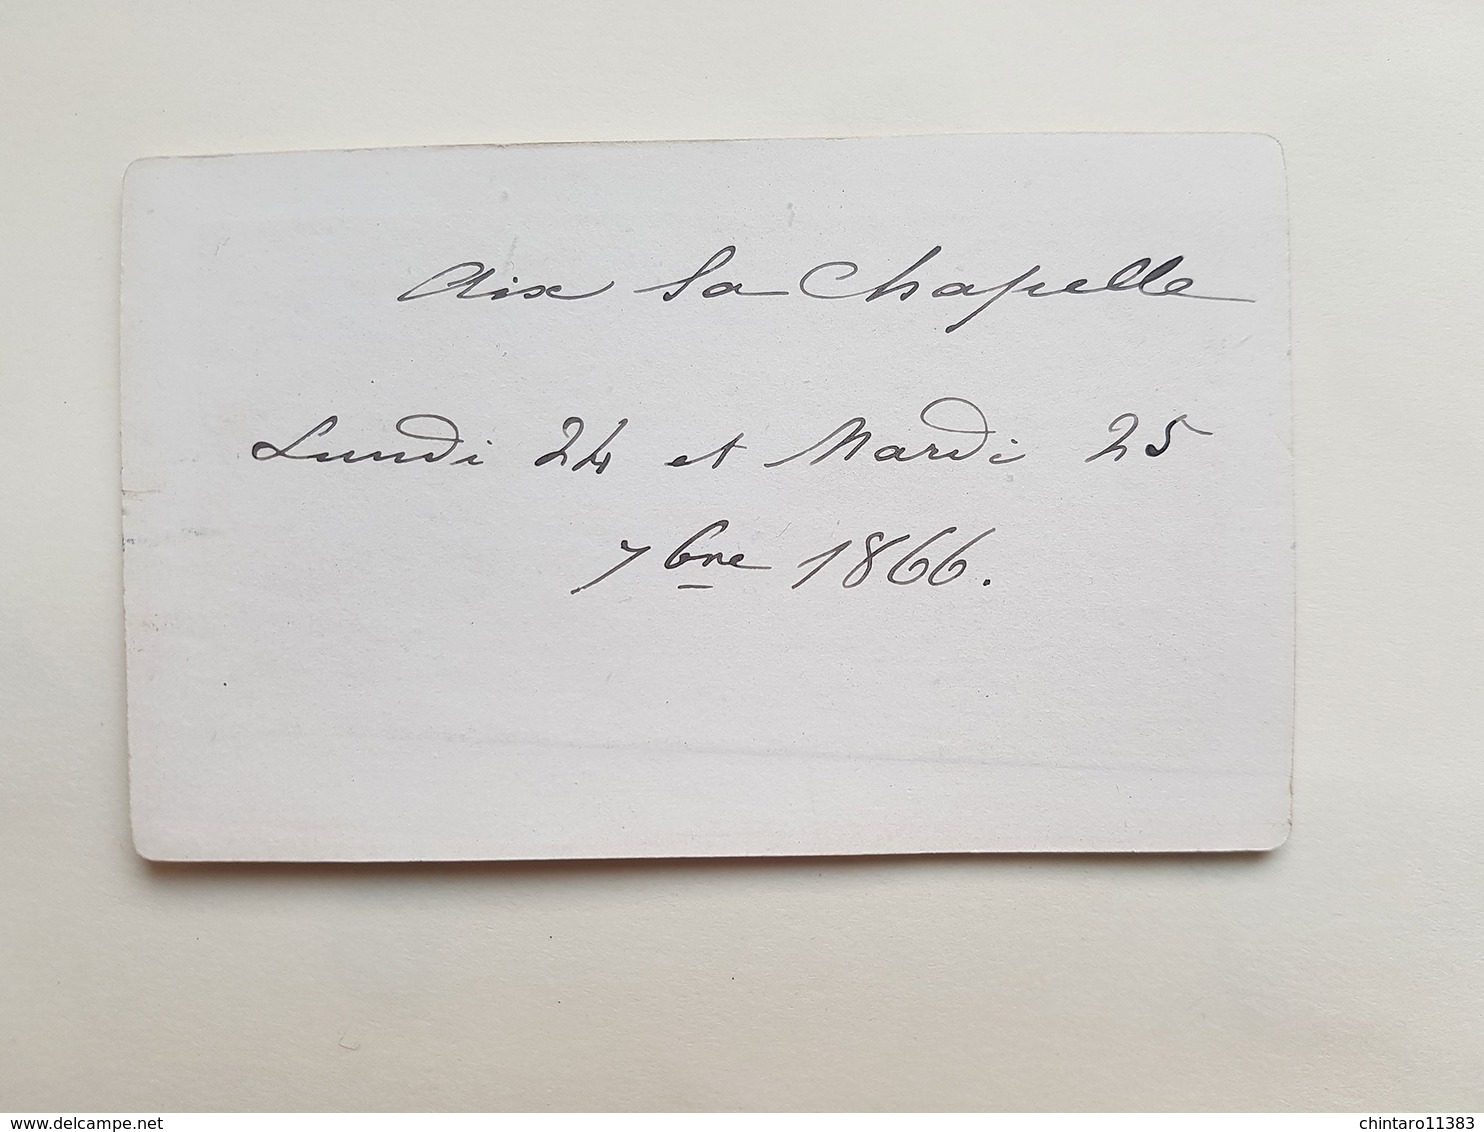 Aix la Chapelle
Lundi 24 et Mardi 25
7bre 1866.
delcampe.net
chintaro11383